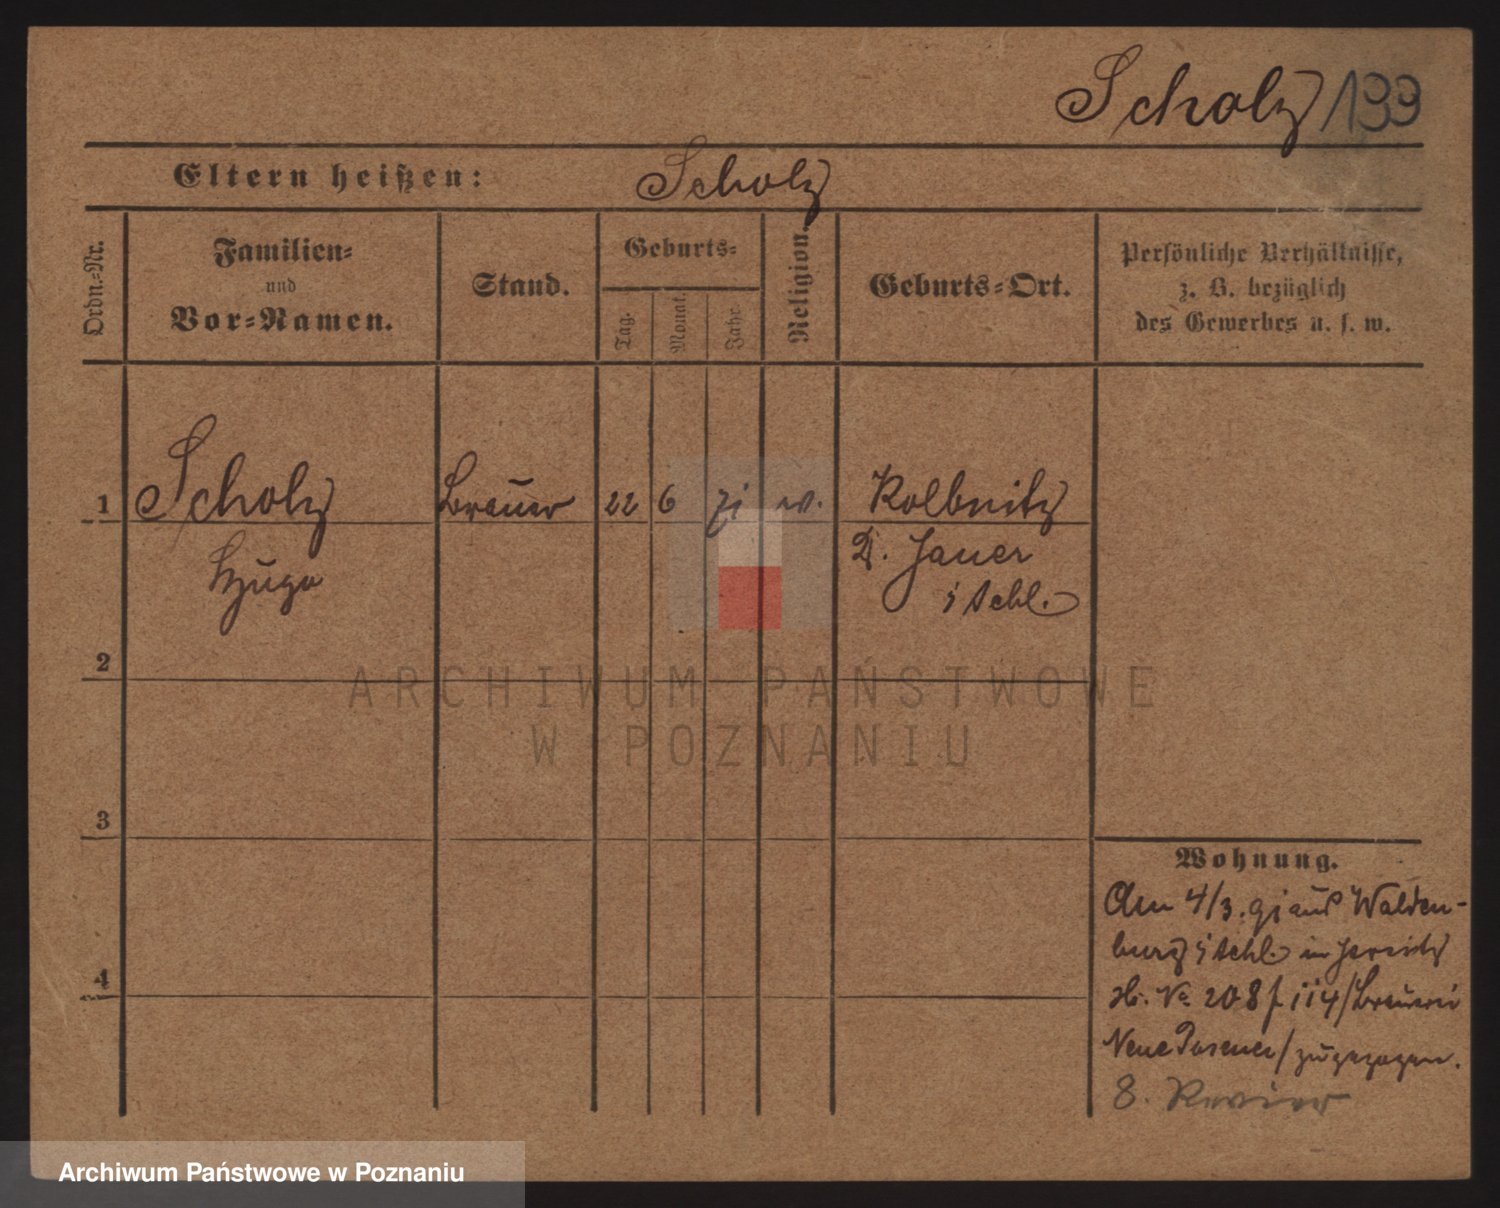 Scholz 199
Eltern heißen: Scholz
Ordn.-Nr.
Familien-
und
Vor-Namen.
Stand.
Geburts-
Tag.
Monat.
Jahr.
Religion.
Geburts-Ort.
Persönliche Verhältnisse,
z. B. bezüglich
des Gewerbes u. s. w.
1 Scholz Brauer 22 6 71 Kolbnitz
Hugo Jauer
i Schl.
2
3
4
Wohnung.
Am 4/3. 91 aus Walden-
burg i Schl. in Jersitz
No 208 f 114/Brauerei
Neue Posener/zugezogen.
8. Revier
ARCHIWUM PAŃSTWOWE
W POZNANIU
Archiwum Państwowe w Poznaniu